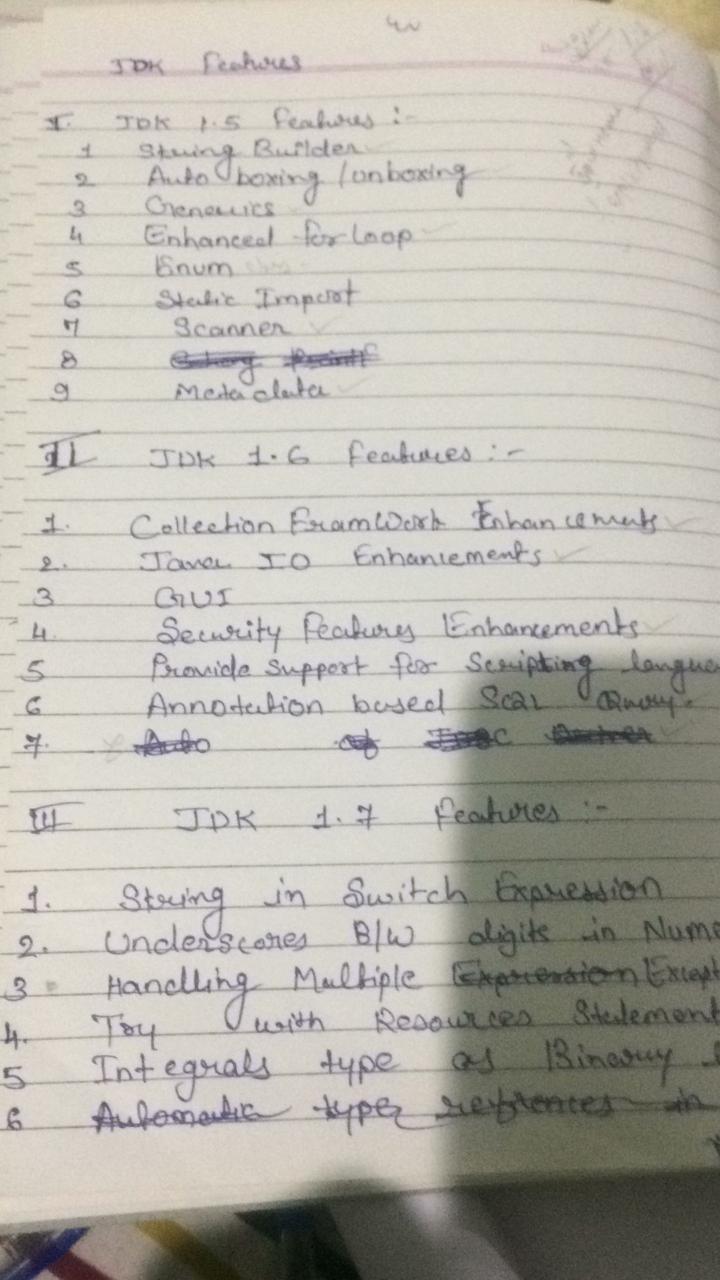 JDK Features
I. JDK 1.5 Features :-
1 String Builder
2 Auto boxing /unboxing
3 Generics
4 Enhanced for Loop
5 Enum
6 Static Import
7 Scanner
8
9 Meta data
II JDK 1.6 Features :-
1. Collection FramWork Enhancements
2. Java IO Enhancements
3 GUI
4. Security Features Enhancements
5 Provide Support for Scripting langua
6 Annotation based Query.
7.
III JDK 1.7 Features :-
1. String in Switch Expression
2. Underscores B/W digits in Nume
3 Handling Multiple Expression Except
4. Try with Resources Statement
5 Integrals type as Binary
6 Automatic type references in